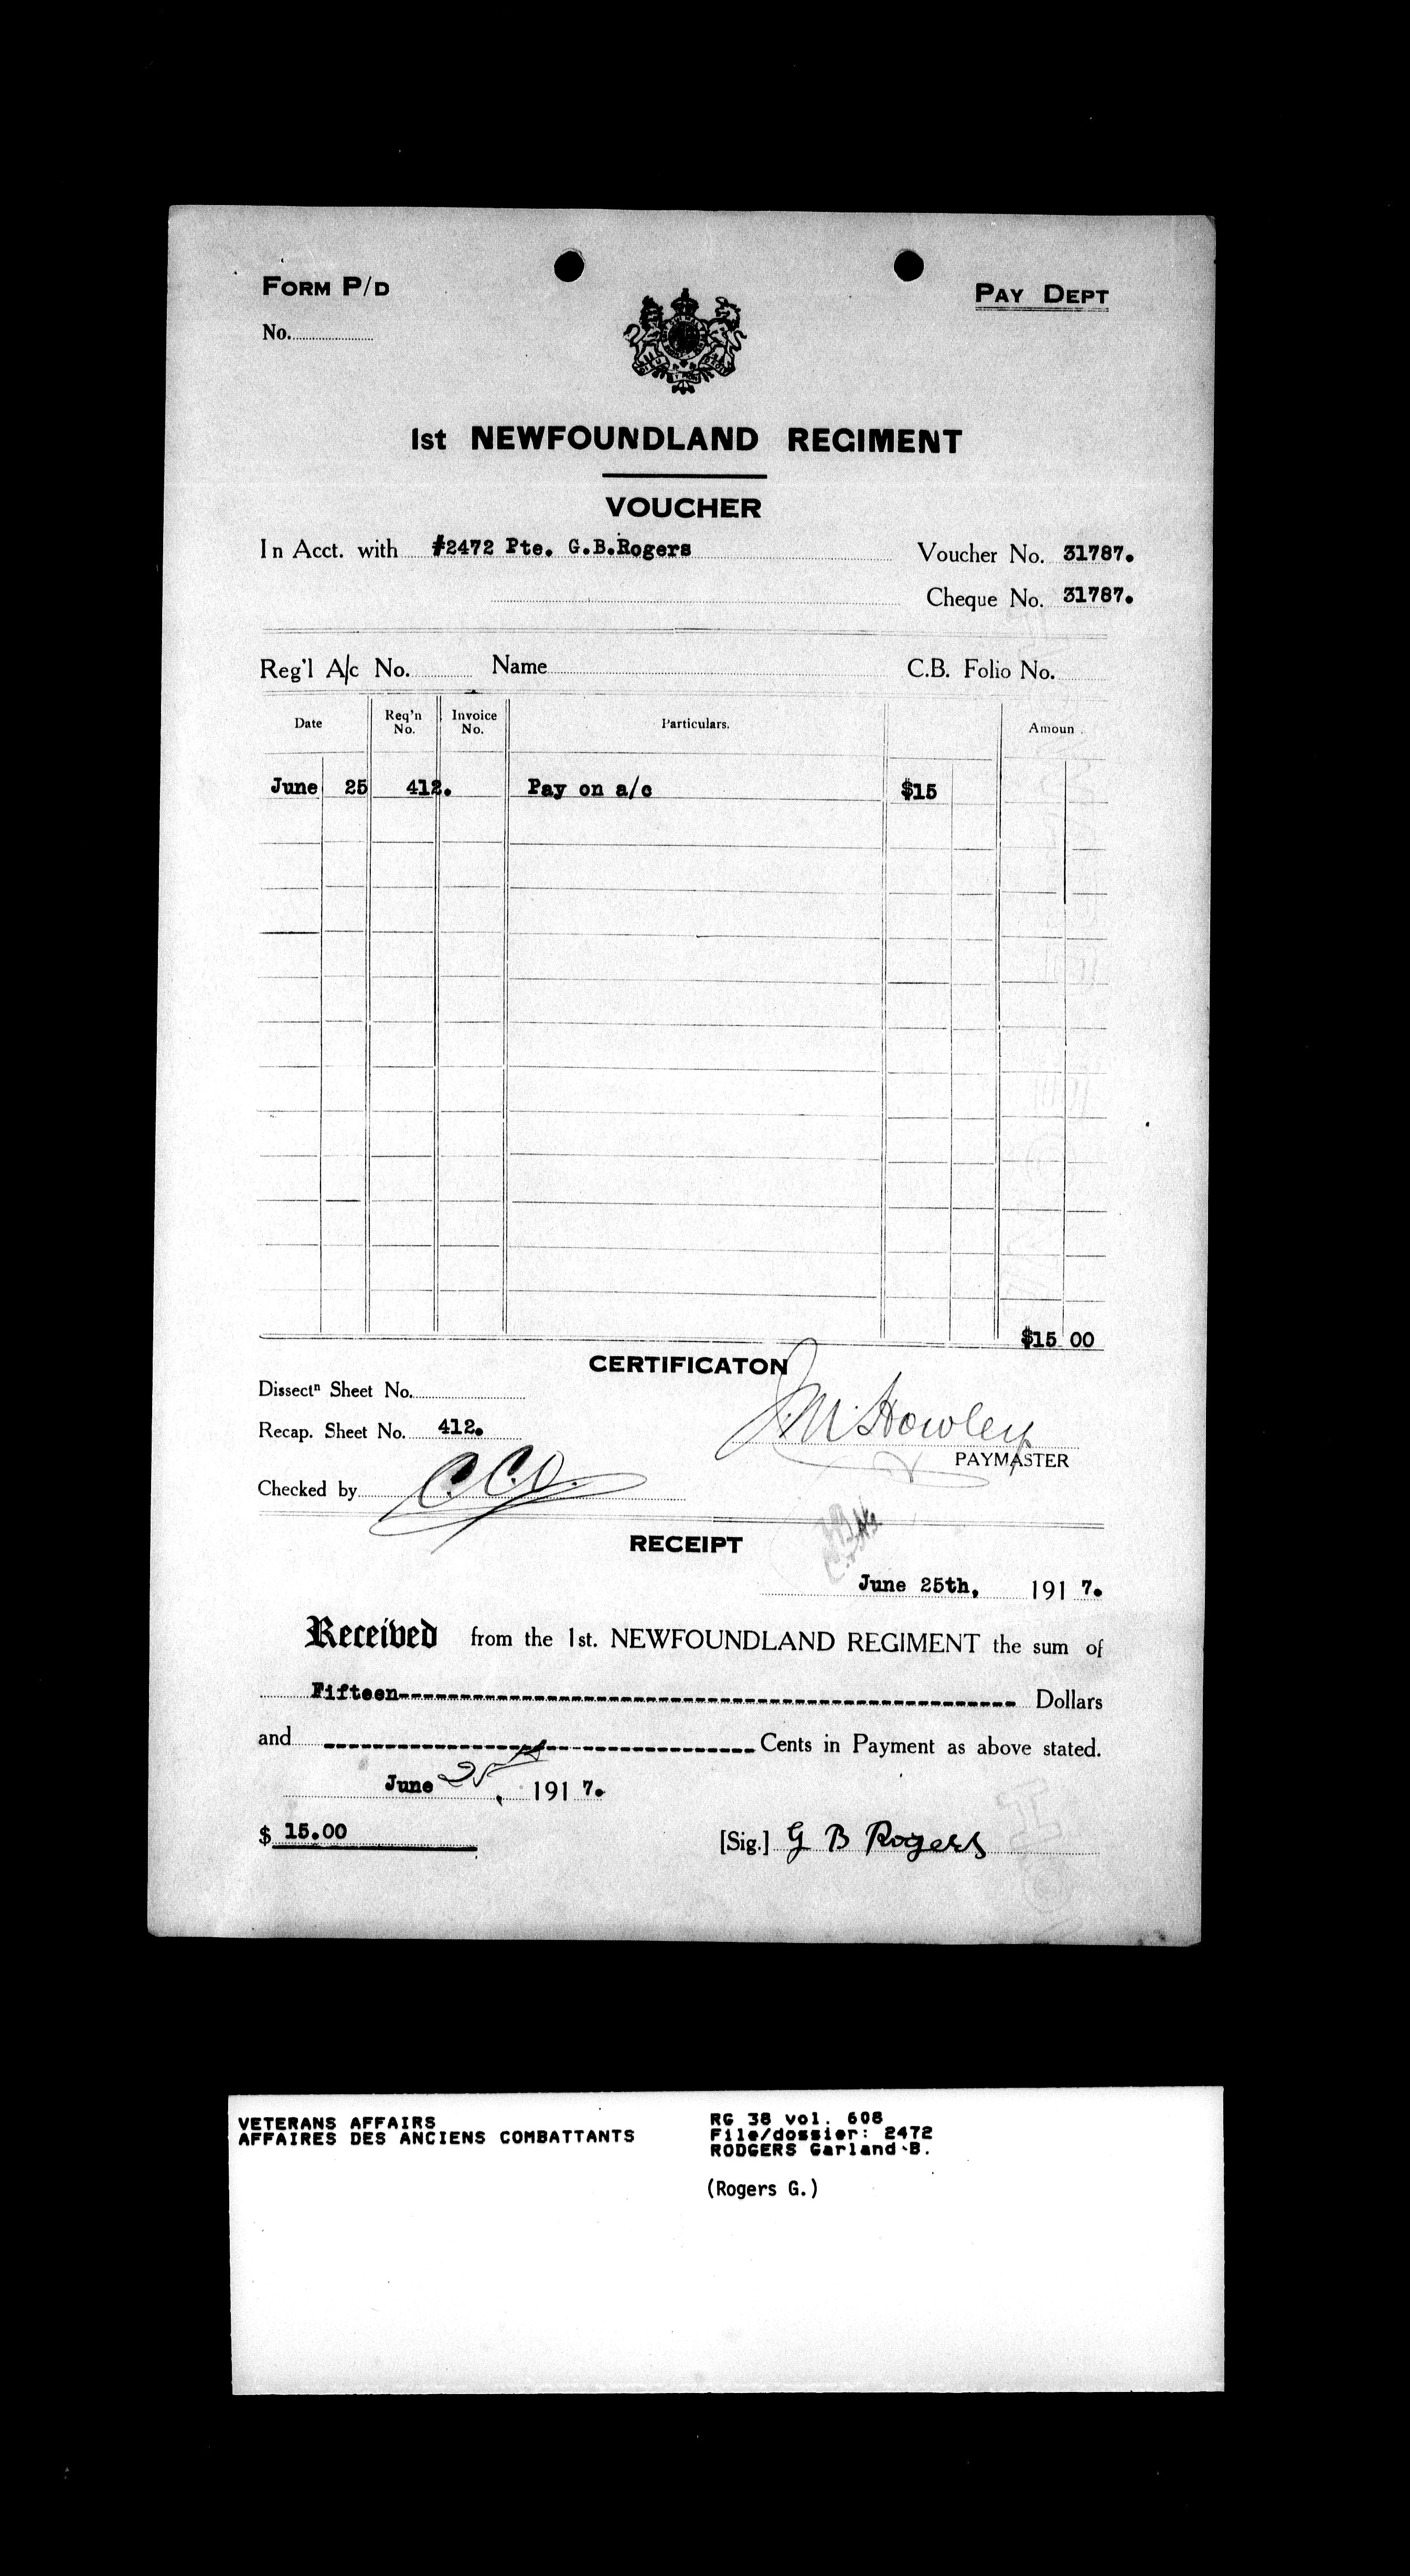 FORM P/D
PAY DEPT
No.
1st NEWFOUNDLAND REGIMENT
VOUCHER
In Acct. with #2472 Pte. G.B.Rogers
Voucher No. 31787.
Cheque No. 31787.
Reg'l A/c No. Name C.B. Folio No.
Date Req'n No. Invoice No. Particulars. Amoun
June 25 412. Pay on a/c $15
$15 00
CERTIFICATON
Dissectn Sheet No.
Recap. Sheet No. 412.
J.M. Howley
PAYMASTER
Checked by
RECEIPT
June 25th, 1917.
Received from the 1st. NEWFOUNDLAND REGIMENT the sum of
Fifteen---------- Dollars
and ---------- Cents in Payment as above stated.
June 25, 1917.
$ 15.00
[Sig.] G B Rogers
VETERANS AFFAIRS
AFFAIRES DES ANCIENS COMBATTANTS
RG 38 vol. 608
File/dossier: 2472
RODGERS Garland B.
(Rogers G.)